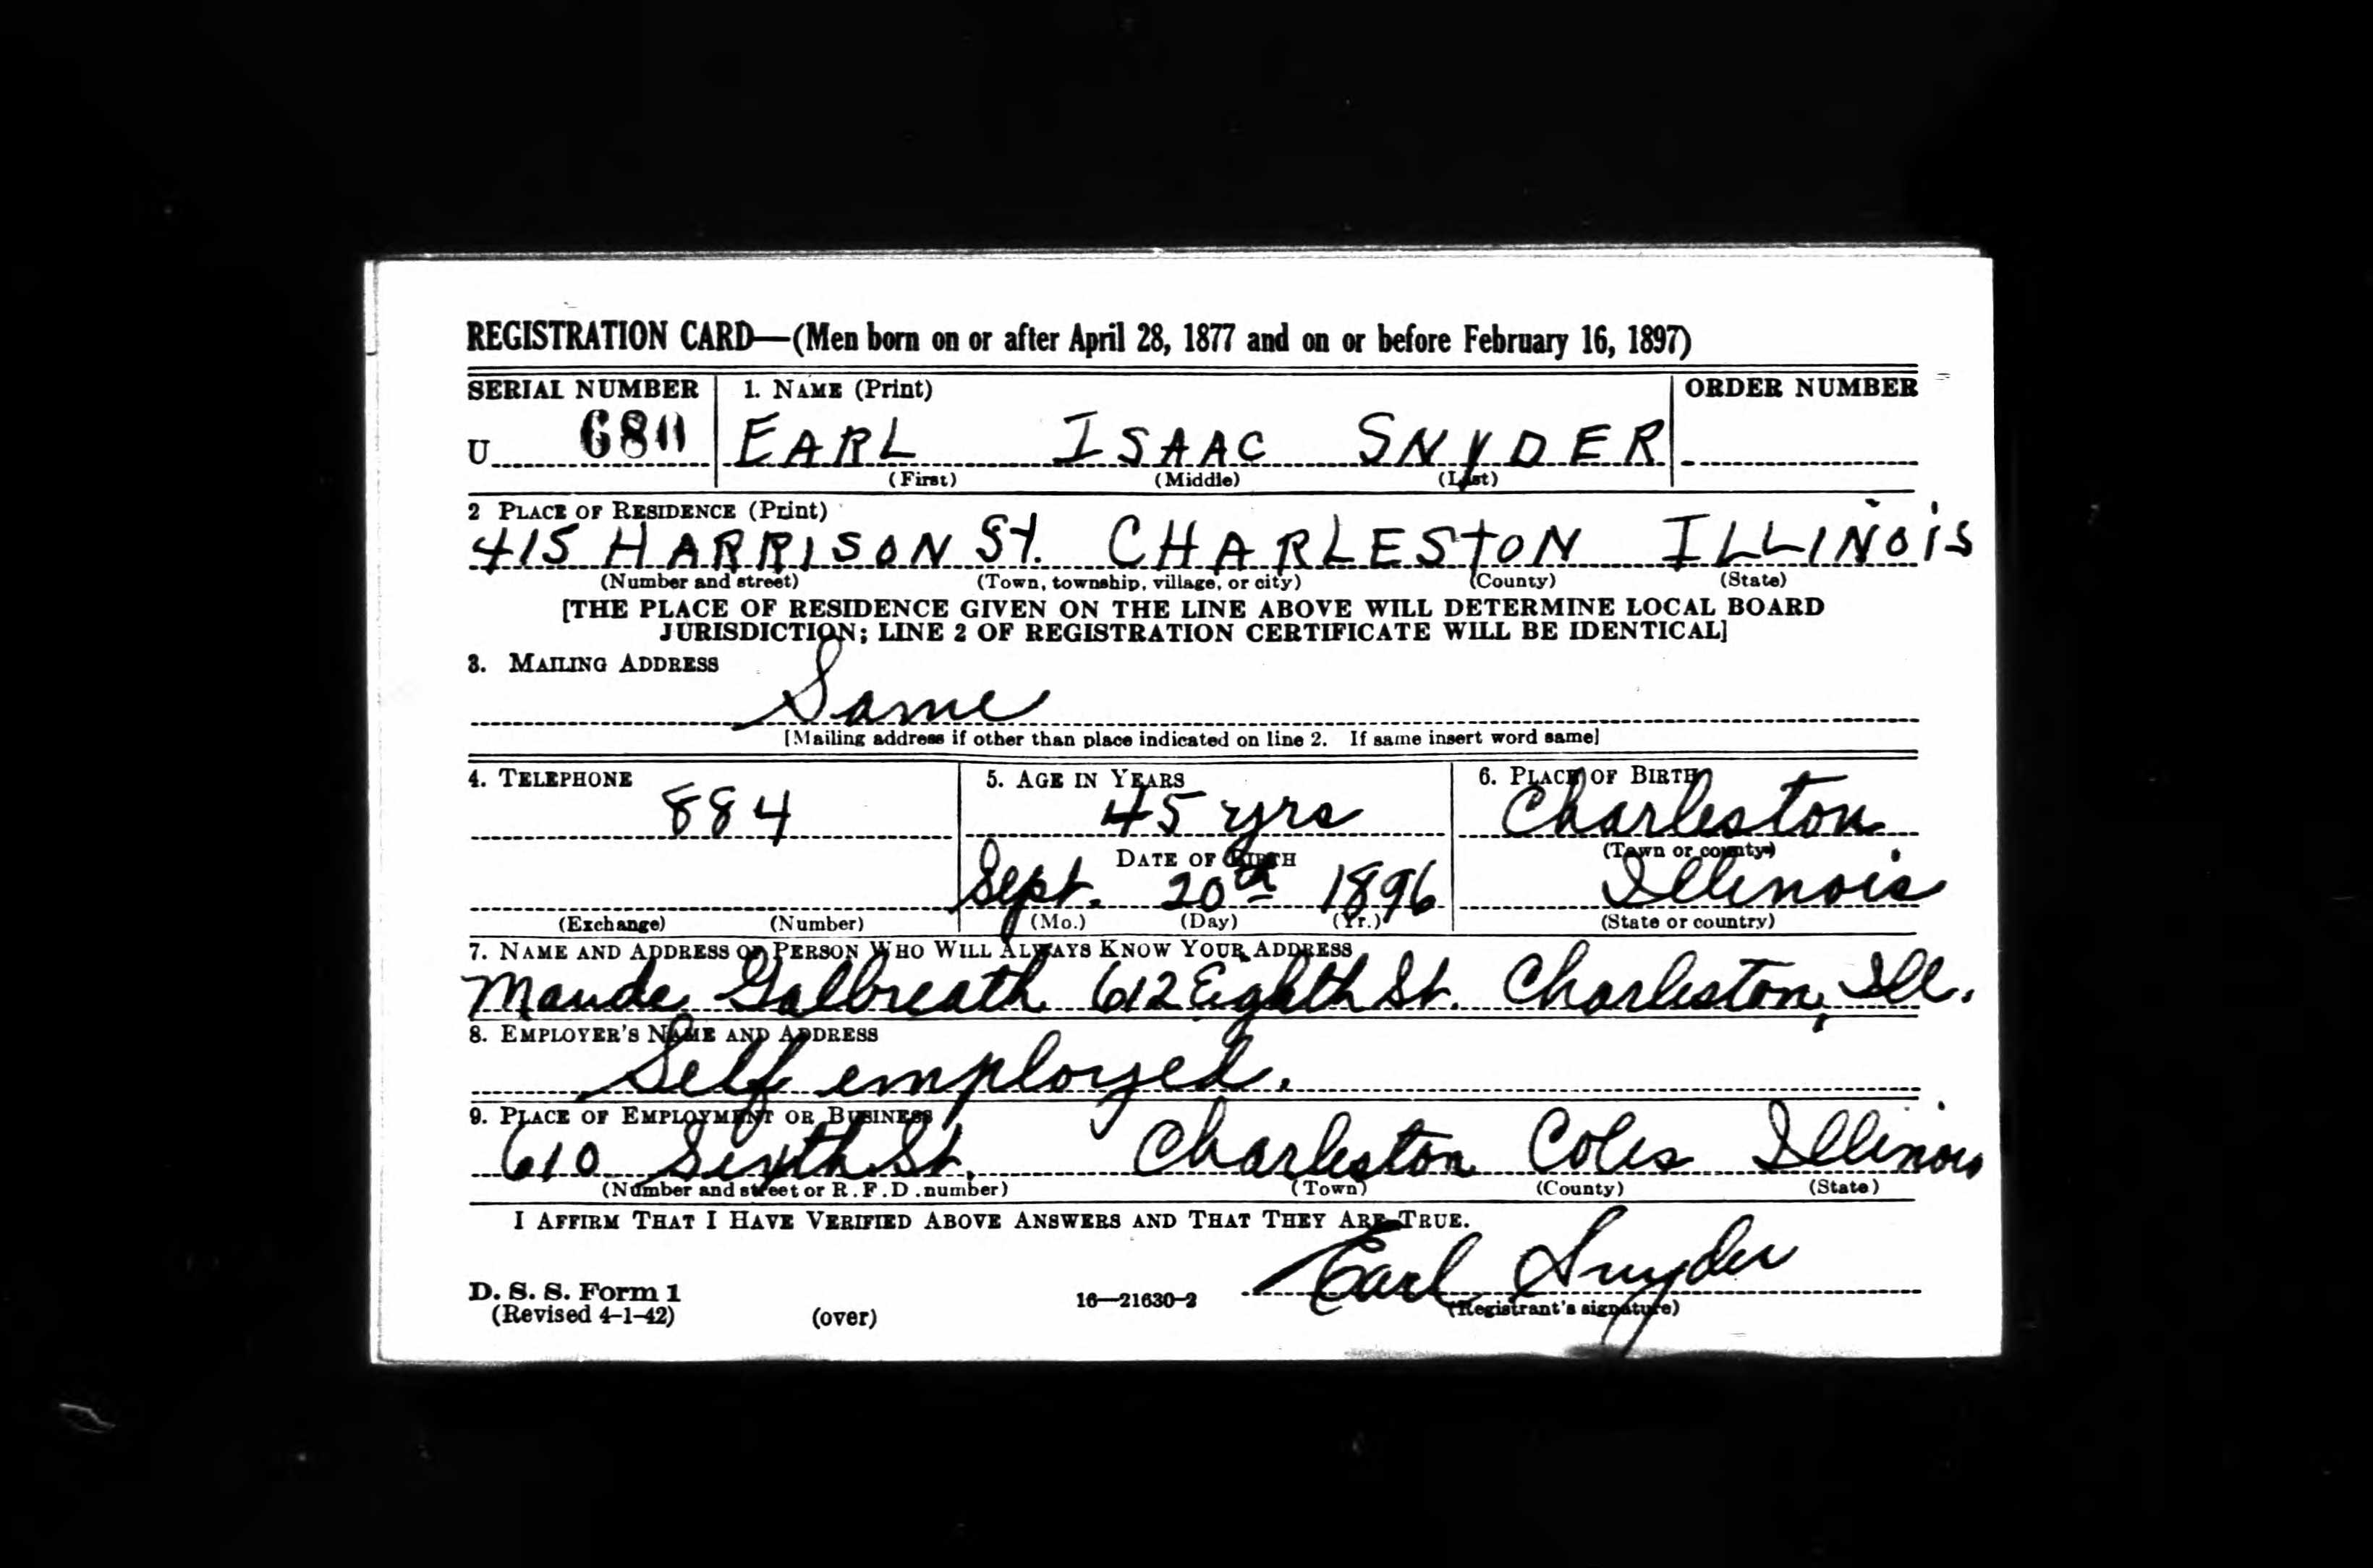 REGISTRATION CARD—(Men born on or after April 28, 1877 and on or before February 16, 1897)
SERIAL NUMBER 1. NAME (Print) ORDER NUMBER
U 680 EARL ISAAC SNYDER
(First) (Middle) (Last)
2 PLACE OF RESIDENCE (Print)
415 HARRISON St. CHARLESTON ILLINOIS
(Number and street) (Town, township, village, or city) (County) (State)
[THE PLACE OF RESIDENCE GIVEN ON THE LINE ABOVE WILL DETERMINE LOCAL BOARD
JURISDICTION; LINE 2 OF REGISTRATION CERTIFICATE WILL BE IDENTICAL]
3. MAILING ADDRESS
Same
[Mailing address if other than place indicated on line 2. If same insert word same]
4. TELEPHONE 5. AGE IN YEARS 6. PLACE OF BIRTH
884 45 yrs Charleston
DATE OF BIRTH (Town or county)
Sept. 20th 1896 Illinois
(Exchange) (Number) (Mo.) (Day) (Yr.) (State or country)
7. NAME AND ADDRESS OF PERSON WHO WILL ALWAYS KNOW YOUR ADDRESS
Maude Galbreath 612 Eighth St. Charleston, Ill.
8. EMPLOYER'S NAME AND ADDRESS
Self employed.
9. PLACE OF EMPLOYMENT OR BUSINESS
610 Sixth St. Charleston Coles Illinois
(Number and street or R.F.D. number) (Town) (County) (State)
I AFFIRM THAT I HAVE VERIFIED ABOVE ANSWERS AND THAT THEY ARE TRUE.
Earl Snyder
D. S. S. Form 1 16—21630-2 (Registrant's signature)
(Revised 4-1-42) (over)